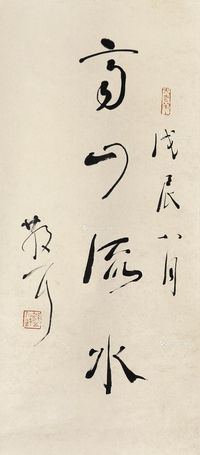 戊辰八月
高山流水
散耳